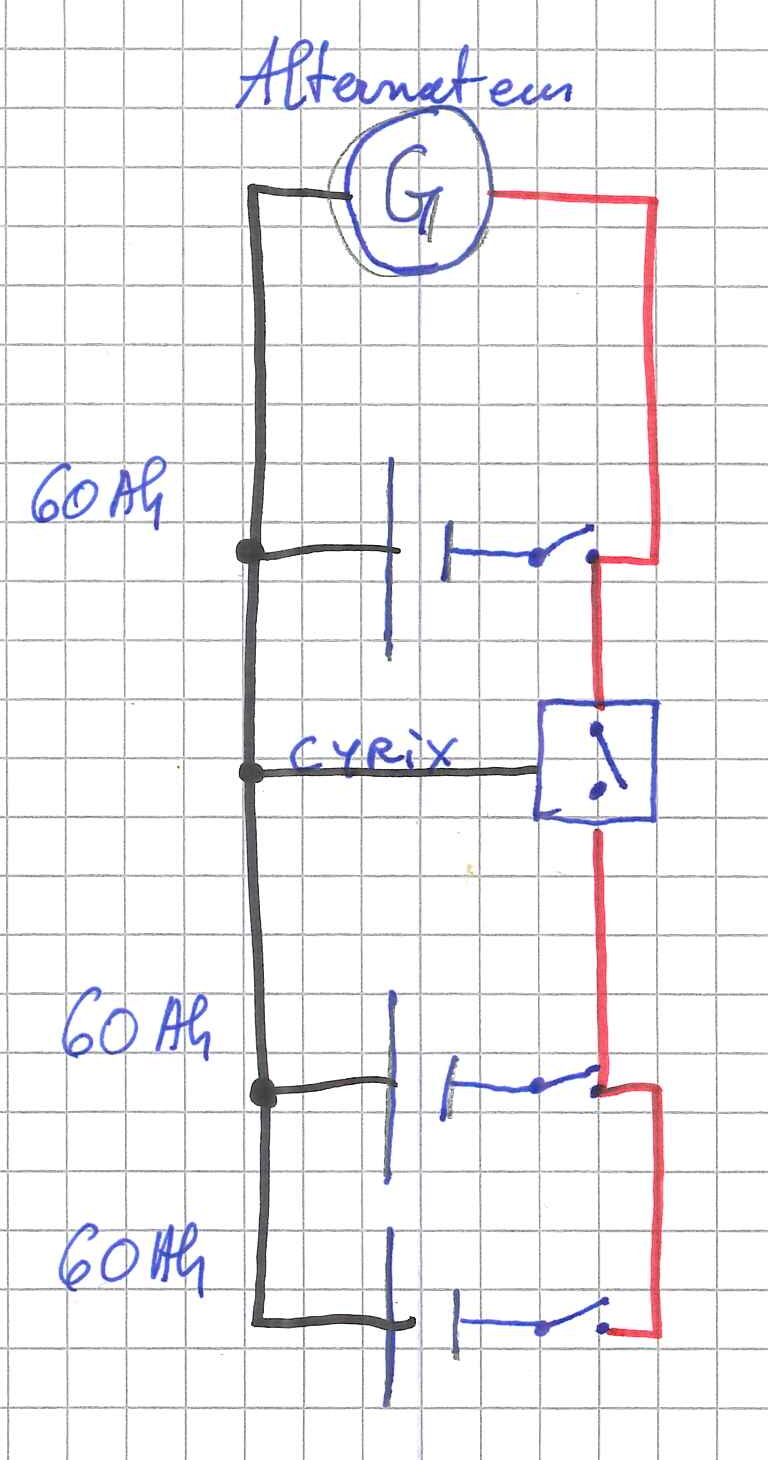 Alternateur
G
60 Ah
CYRiX
60 Ah
60 Ah